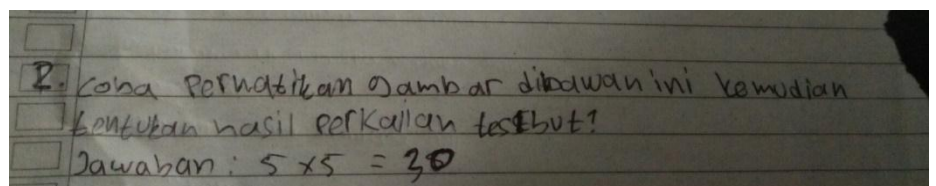 2. Coba Perhatikan gambar dibawah ini kemudian
tentukan hasil perkalian tesebut!
Jawaban : 5 x 5 = 30